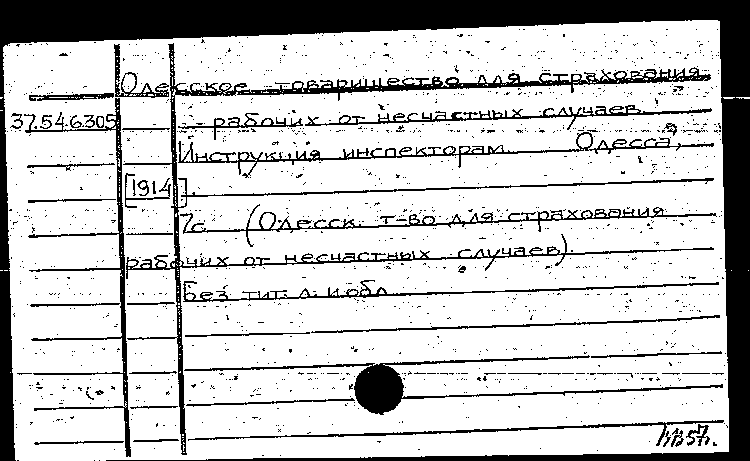 Одесское товарищество для страхования
37.54.6305 рабочих от несчастных случаев.
Инструкция инспекторам. Одесса,
[1914].
7с. (Одесск. т-во для страхования
рабочих от несчастных случаев)
Без тит. л. и обл.